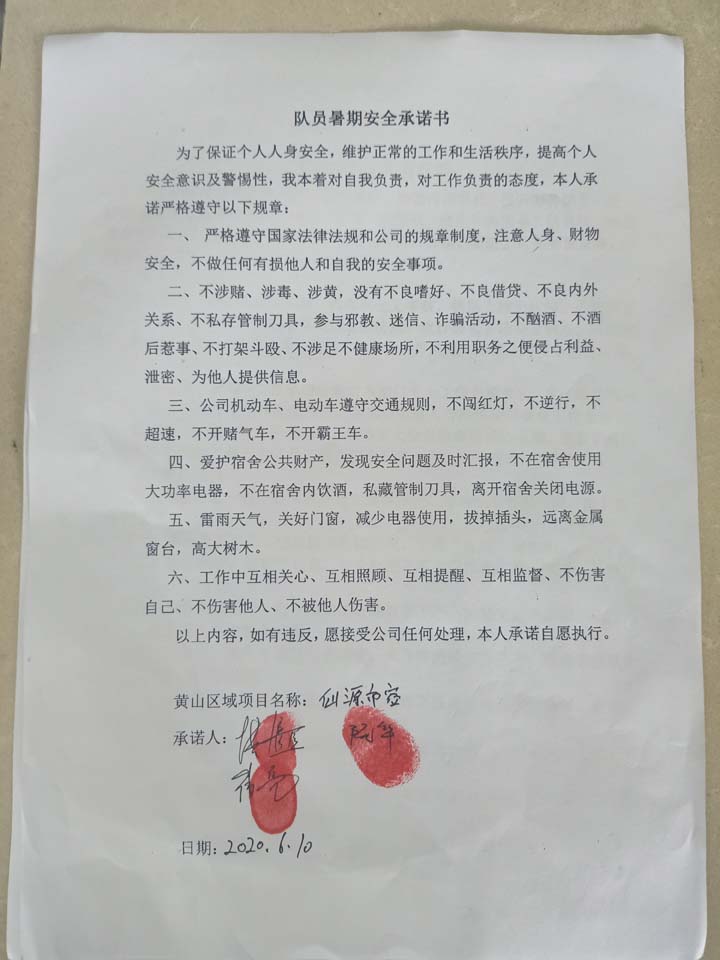 队员暑期安全承诺书
为了保证个人人身安全，维护正常的工作和生活秩序，提高个人
安全意识及警惕性，我本着对自我负责，对工作负责的态度，本人承
诺严格遵守以下规章：
一、 严格遵守国家法律法规和公司的规章制度，注意人身、财物
安全，不做任何有损他人和自我的安全事项。
二、不涉赌、涉毒、涉黄，没有不良嗜好、不良借贷、不良内外
关系、不私存管制刀具，参与邪教、迷信、诈骗活动，不酗酒、不酒
后惹事、不打架斗殴、不涉足不健康场所，不利用职务之便侵占利益、
泄密、为他人提供信息。
三、公司机动车、电动车遵守交通规则，不闯红灯，不逆行，不
超速，不开赌气车，不开霸王车。
四、爱护宿舍公共财产，发现安全问题及时汇报，不在宿舍使用
大功率电器，不在宿舍内饮酒，私藏管制刀具，离开宿舍关闭电源。
五、雷雨天气，关好门窗，减少电器使用，拔掉插头，远离金属
窗台，高大树木。
六、工作中互相关心、互相照顾、互相提醒、互相监督、不伤害
自己、不伤害他人、不被他人伤害。
以上内容，如有违反，愿接受公司任何处理，本人承诺自愿执行。
黄山区域项目名称：仙源
承诺人：
日期：2020.6.10